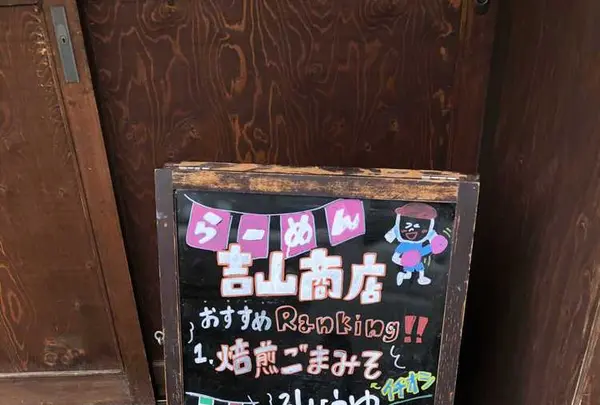 らーめん
吉山商店
おすすめ Ranking!!
1. 焙煎ごまみそ
イチオシ